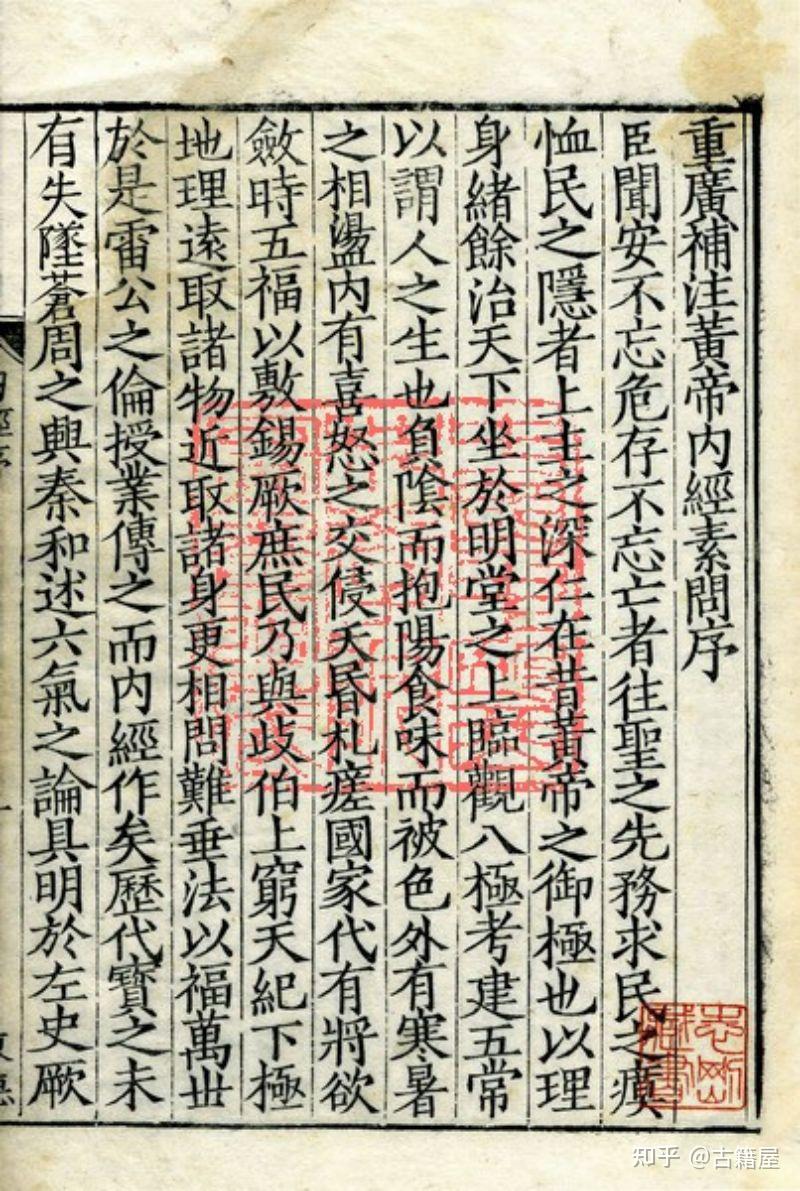 重廣補注黃帝內經素問序
臣聞安不忘危存不忘亡者往聖之先務求民之瘼
恤民之隱者上主之深仁在昔黃帝之御極也以理
身緒餘治天下坐於明堂之上臨觀八極考建五常
以謂人之生也負陰而抱陽食味而被色外有寒暑
之相盪內有喜怒之交侵夭昏札瘥國家代有將欲
斂時五福以敷錫厥庶民乃與歧伯上窮天紀下極
地理遠取諸物近取諸身更相問難垂法以福萬世
於是雷公之倫授業傳之而內經作矣歷代寶之未
有失墜蒼周之興秦和述六氣之論具明於左史厥
知乎 @古籍屋